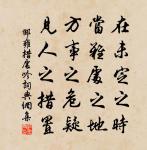 在未定之時
當難處之地
方事之危疑
見人之措置
邵雍措處吟詞典網集